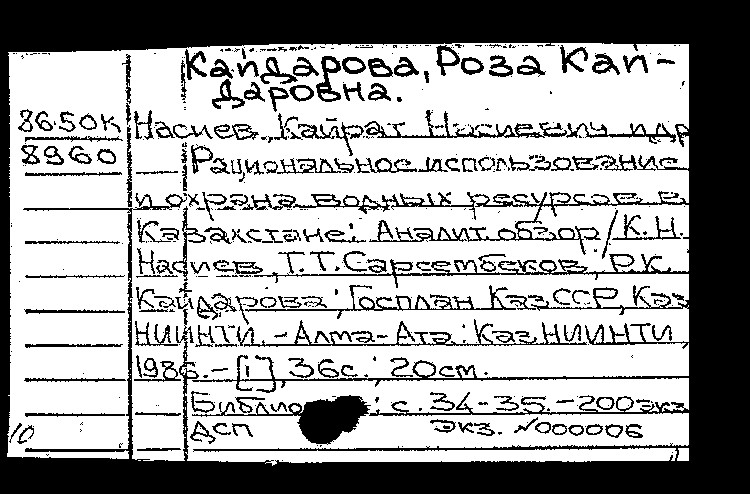 Кайдарова, Роза Кай-
даровна.
86.50К Насиев, Кайрат Насиевич и др
8960 Рациональное использование
и охрана водных ресурсов в
Казахстане: Аналит. обзор / К. Н.
Насиев, Т. Т. Сарсембеков, Р. К.
Кайдарова; Госплан КазССР, Каз
НИИНТИ. - Алма-Ата: КазНИИНТИ,
1986. - [1], 36с.; 20см.
: с. 34-35. - 200экз
10 ДСП экз. №000006